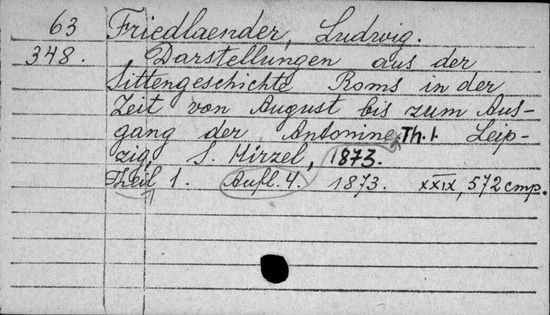 63 Friedlaender, Ludwig.
348. Darstellungen aus der
Sittengeschichte Roms in der
Zeit von August bis zum Aus-
gang der Antonine Th. 1. Leip-
zig, S. Hirzel, 1873.
Theil 1. Aufl. 4. 1873. XXIX, 572 стр.